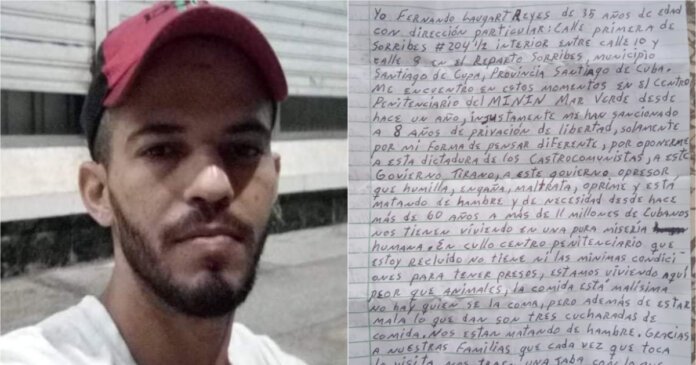 Yo Fernando Laugart Reyes de 35 años de edad
con dirección particular: calle primera de
Sorribes #204 1/2 interior entre calle 10 y
calle 9 en el Reparto Sorribes, municipio
Santiago de Cuba, Provincia Santiago de Cuba.
Me encuentro en estos momentos en el Centro
Penitenciario del MININ Mar Verde desde
hace un año, injustamente me han sancionado
a 8 años de privación de libertad, solamente
por mi forma de pensar diferente, por oponerme
a esta dictadura de los Castrocomunistas, a este
Gobierno Tirano, a este gobierno opresor
que humilla, engaña, maltrata, oprime y está
matando de hambre y de necesidad desde hace
más de 60 años a más de 11 millones de Cubanos
nos tienen viviendo en una pura miseria
humana. En cullo centro penitenciario que
estoy recluido no tiene ni las minimas condici
ones para tener presos, estamos viviendo aquí
peor que animales, la comida está malísima
no hay quien se la coma, pero además de estar
mala lo que dan son tres cucharadas de
comida. Nos estan matando de hambre. Gracias
a nuestras familias que cada vez que toca
la visita nos traen una jaba con lo que